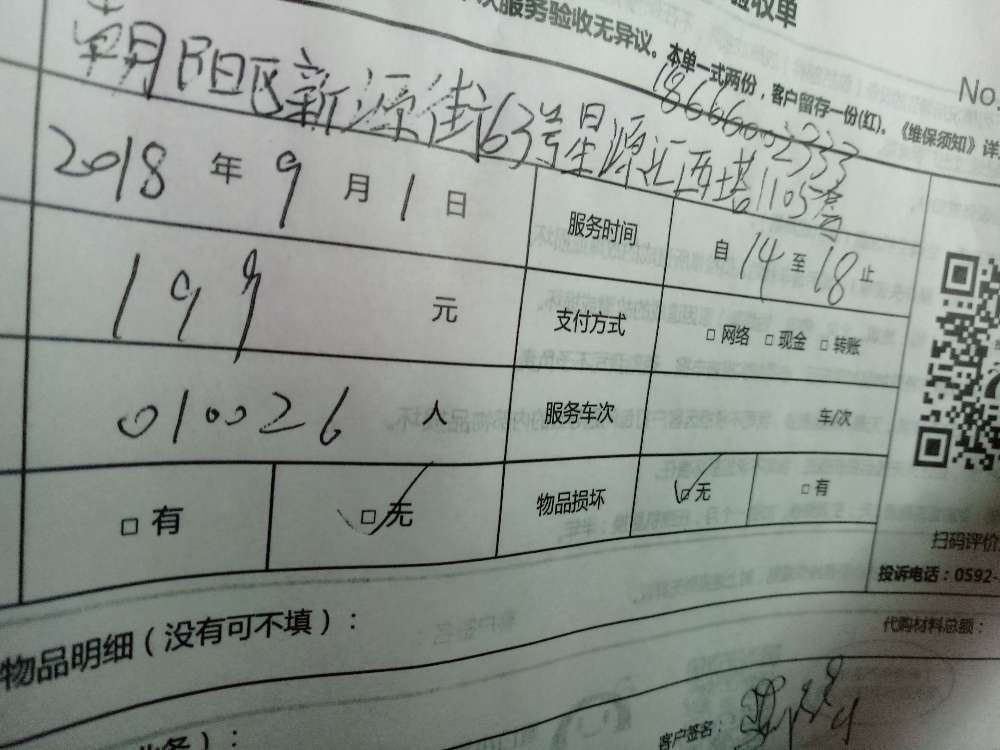 验收单
次服务验收无异议。本单一式两份，客户留存一份(红)。《维保须知》详
No.
朝阳区新源街63号星源汇西塔1105室
18666002333
2018 年 9 月 1 日 服务时间 自 14 至 18 止
199 元 支付方式 □ 网络 □ 现金 □ 转账
010026 人 服务车次 车/次
□ 有 □ 无 物品损坏 □ 无 □ 有
扫码评价
投诉电话：0592-
物品明细（没有可不填）：
代购材料总额：
业务）：
客户签名：